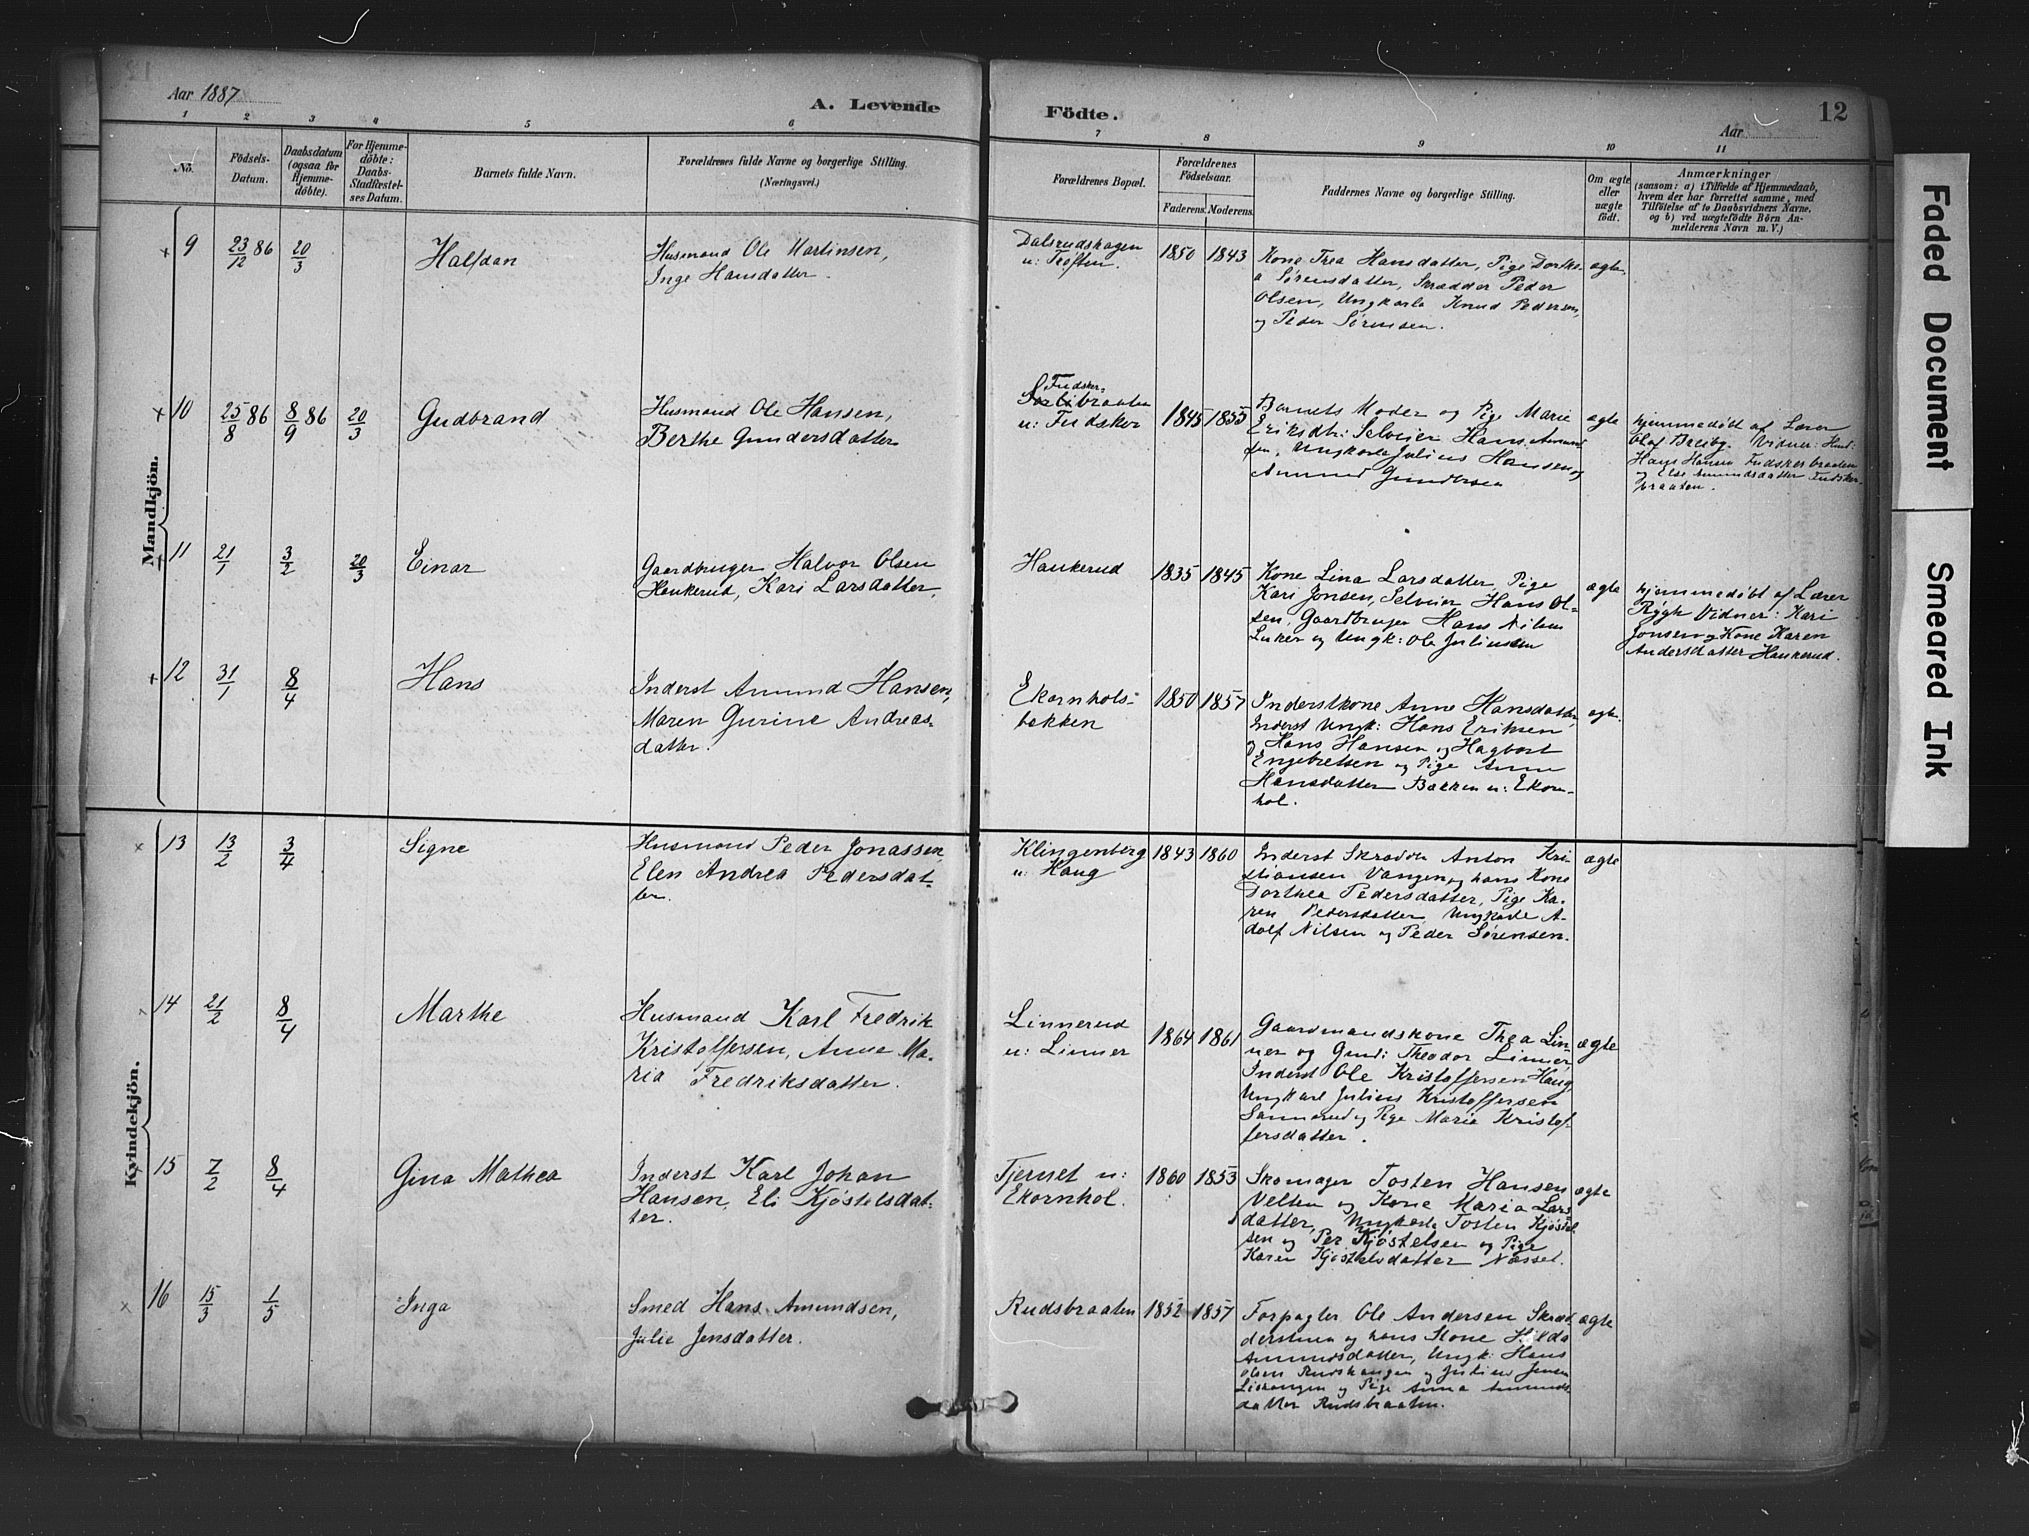 Aar 1887
A. Levende
Födte.
Aar
12
1 2 3 4 5 6 7 8 9 10 11
No.
Födsels-
Datum.
Daabsdatum
(ogsaa for
Hjemme-
döbte).
For Hjemme-
döbte:
Daabs-
Stadfæstel-
ses Datum.
Barnets fulde Navn.
Forældrenes fulde Navne og borgerlige Stilling.
(Næringsvei.)
Forældrenes Bopæl.
Forældrenes
Födselsaar.
Faderens. Moderens.
Faddernes Navne og borgerlige Stilling.
Om ægte
eller
uægte
födt.
Anmærkninger
(saasom: a) i Tilfælde af Hjemmedaab,
hvem der har forrettet samme, med
Tilföielse af to Daabsvidners Navne,
og b) ved uægtefödte Börn An-
melderens Navn m. V.)
Mandkjön.
9
23/12 86
20/3
Halfdan
Husmand Ole Martinsen,
Inge Hansdatter.
Dalsrudshagen
u: Toften.
1850 1843
Kone Thea Hansdatter, Pige Dorthe-
a Sørensdatter, Skrædder Peder
Olsen, Ungkarle Knud Pedersen,
og Peder Sørensen.
ægte
10
25/8 86
8/9 86
20/3
Gudbrand
Husmand Ole Hansen,
Berthe Gundersdatter
Fudsker-
braaten
u: Fudsker
1845 1855
Barnets Moder og Pige Marie
Eriksdtr: Selveier Hans Amund
sen, Ungkarle Julius Hansen og
Amund Gundersen
ægte
hjemmedøbt af Lærer
Olaf Breiby. Vidner: Husm.
Hans Hansen Fudskerbraaten
og Else Amundsdatter Fudsker-
braaten.
11
21/1
3/2
20/3
Einar
Gaardbruger Halvor Olsen
Haukerud, Kari Larsdatter,
Haukerud
1835 1845
Kone Lina Larsdatter, Pige
Kari Jonsen, Selveier Hans Ol-
sen, Gaardbruger Hans Nilsen
og Ungk: Ole Juliussen
ægte
hjemmedøbt af Lærer
Rygh Vidner: Kari
Jonsen og Kone Karen
Andersdatter Haukerud.
12
31/1
8/4
Hans
Inderst Amund Hansen,
Maren Gurine Andreas-
datter.
Ekornhols-
bakken
1850 1857
Inderstkone Anne Hansdatter,
Inderst Ungk: Hans Eriksen
og Hans Hansen og Hagbart
Engebretsen og Pige Anne
Hansdatter Bakken u: Ekorn-
hol.
ægte.
Kvindekjön.
13
13/2
3/4
Signe
Husmand Peder Jonassen
Elen Andrea Pedersdat-
ter.
Klingenberg
u: Haug
1843 1860
Inderst Skrædder Anton Kri-
stiansen Vangen og hans Kone
Dorthea Pedersdatter, Pige Ka-
ren Pedersdatter Ungkarle A-
dolf Nilsen og Peder Sørensen.
ægte
14
21/2
8/4
Marthe
Husmand Karl Fredrik
Kristoffersen, Anne Ma-
ria Fredriksdatter.
Linnerud
u: Linner
1864 1861
Gaardmandskone Thea Lin-
ner og Gmd: Theodor Linner,
Inderst Ole Kristoffersen Haug,
Ungkarl Julius Kristoffersen
Sannerud og Pige Maria Kristof-
fersdatter.
ægte
15
7/2
8/4
Gina Mathea
Inderst Karl Johan
Hansen, Eli Kjøstelsdat-
ter.
Tjernet u:
Ekornhol.
1860 1853
Skomager Tosten Hansen
Velten og Kone Maria Lars-
datter, Ungkarle Tosten Kjøstel
sen og Per Kjøstelsen og Pige
Karen Kjøstelsdatter Næsset.
ægte
16
15/3
1/5
Inga
Smed Hans Amundsen,
Julie Jensdatter.
Rudsbraaten
1852 1857
Forpagter Ole Andersen Skræd
derstuen og hans Kone Hilda
Amundsdatter, Ungk: Hans
Olsen Rudshaugen og Julius Jensen
og Pige Anna Amunds
datter Rudsbraaten.
ægte
Faded Document
Smeared Ink